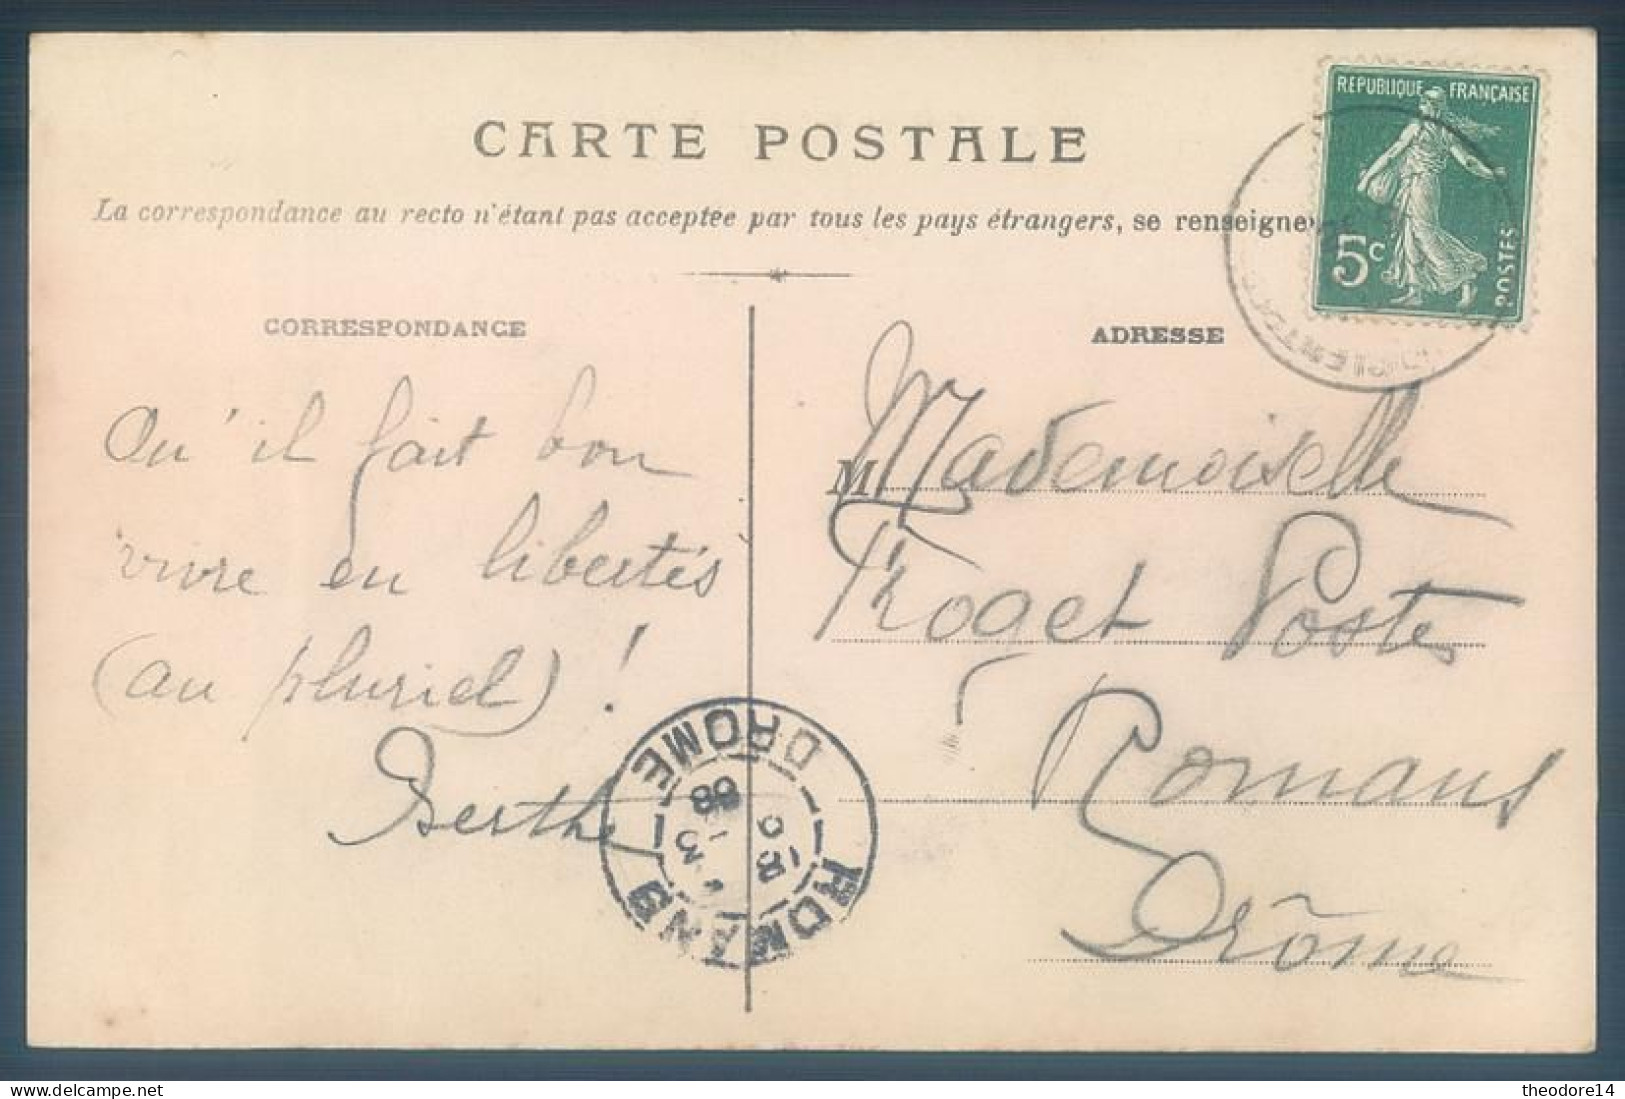 CARTE POSTALE
La correspondance au recto n'étant pas acceptée par tous les pays étrangers, se renseigner
REPUBLIQUE FRANÇAISE
5c
POSTES
CORRESPONDANCE
ADRESSE
Qu'il fait bon
vivre en libertés
(au pluriel) !
Berthe
M Mademoiselle
Roget Poste
Romans
Drôme
ROMANS
DROME
18 -3
08
theodore14